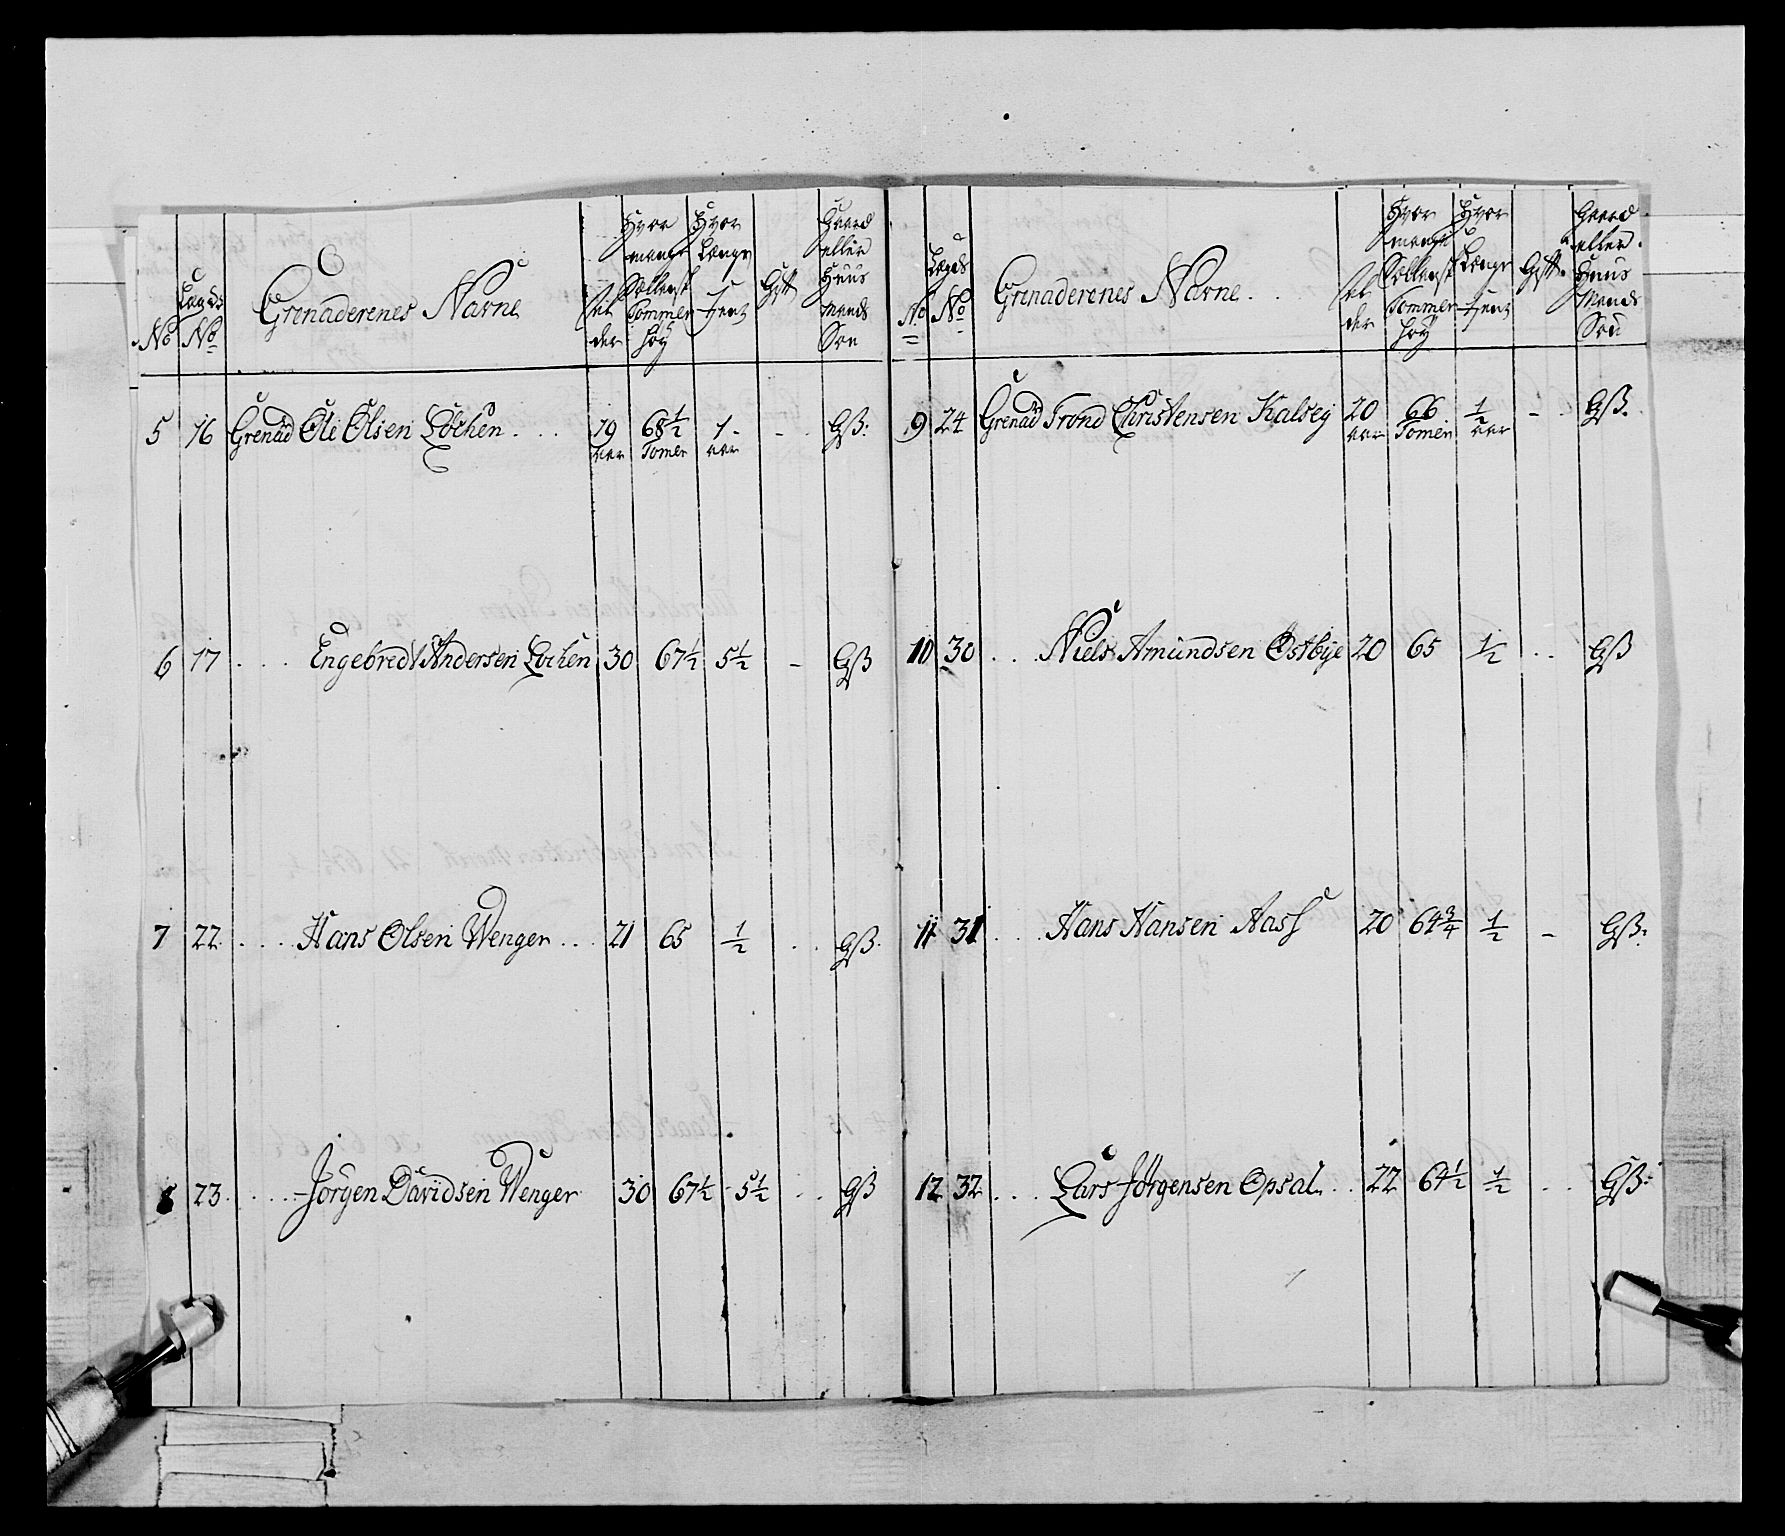 No
Lægds No
Grenaderenes Navne
Al der
Hvor mange Sællansk Tommer høy
Hvor Længe tient
Gift
Gaard eller Huus Mands Søn
5 16 Grenad Ole Olsen Løchen . . . . 19 aar 68½ Tomer 1 aar - . . Gß:
6 17 . . . . Engebredt Andersen Lochen 30 67½ 5½ - Gß
7 22 . . . . Hans Olsen Wenger . . . 21 65 ½ . . Gß.
8 23 . . . . Jörgen Davidsen Wenger 30 67½ 5½ . . Gß
No
Lægds No
Grenaderenes Navne . . .
Al der
Hvor mange Sællansk Tommer høy
Hvor Længe tient
Gift.
Gaard eller Huus Mands Søn
9 24 Grenad Trond Christensen Kalseg 20 aar 66 Tomer ½ aar - . Gß.
10 30 . . . Niels Amundsen Ostbye 20 65 ½ . . Gß
11 31 . . . Hans Hansen Aass 20 64¾ ½ - Gß:
12 32 . . . Lars Jörgensen Opsal . . 22 64½ ½ . . Gß: